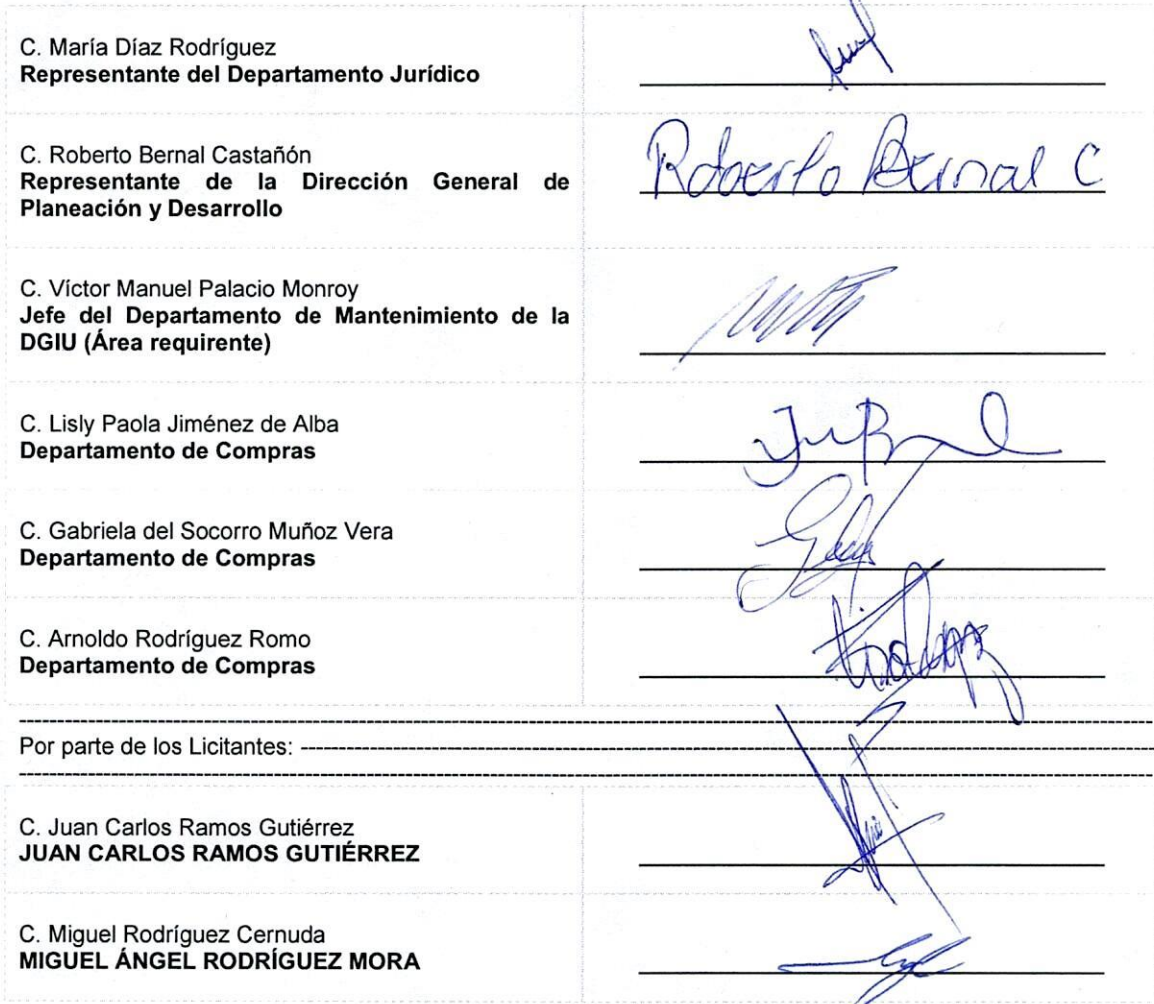 C. María Díaz Rodríguez
Representante del Departamento Jurídico
C. Roberto Bernal Castañón
Representante de la Dirección General de
Planeación y Desarrollo
Roberto Bernal C
C. Víctor Manuel Palacio Monroy
Jefe del Departamento de Mantenimiento de la
DGIU (Área requirente)
C. Lisly Paola Jiménez de Alba
Departamento de Compras
C. Gabriela del Socorro Muñoz Vera
Departamento de Compras
C. Arnoldo Rodríguez Romo
Departamento de Compras
Por parte de los Licitantes:
C. Juan Carlos Ramos Gutiérrez
JUAN CARLOS RAMOS GUTIÉRREZ
C. Miguel Rodríguez Cernuda
MIGUEL ÁNGEL RODRÍGUEZ MORA